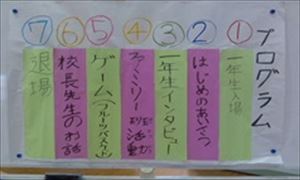 プログラム
① 一年生入場
② はじめのあいさつ
③ 一年生インタビュー
④ ファミリー班活動
⑤ ゲーム(フルーツバスケット)
⑥ 校長先生のお話
⑦ 退場